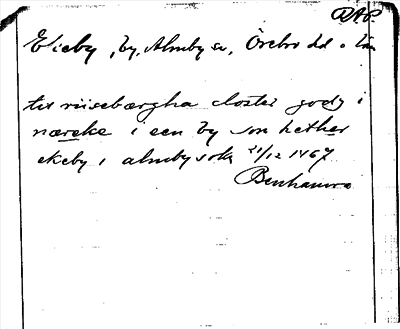 RAP
Ekeby, by, Almby sn, Örebro hd o län
til riisebærgha closter godz i
næreke i een by som hether
ekeby i almby sokn 21/12 1467